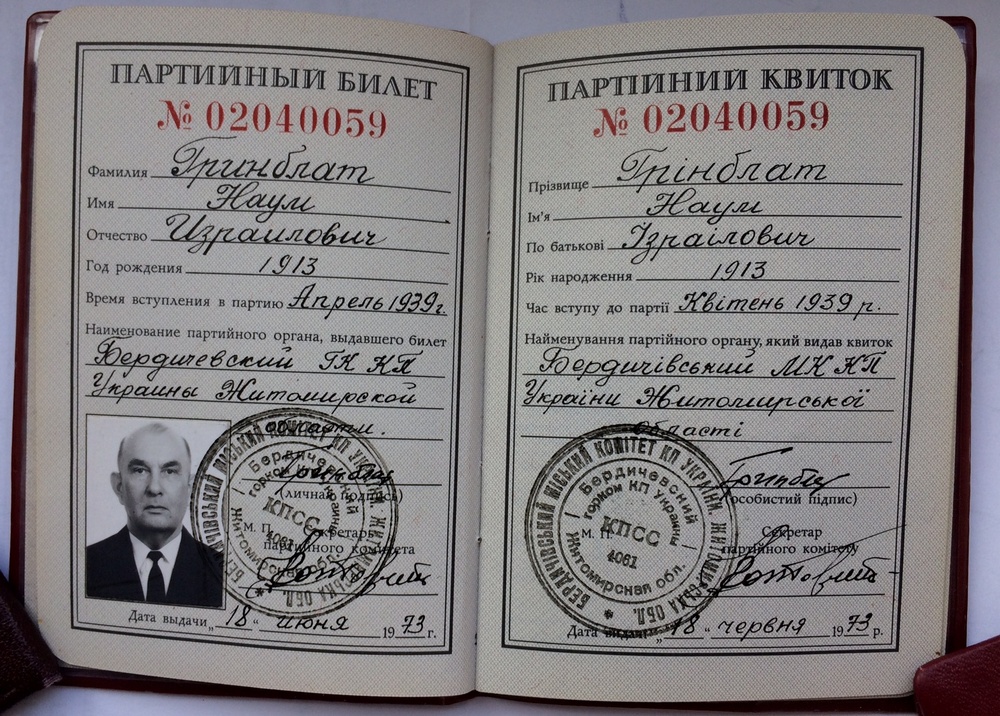 ПАРТИЙНЫЙ БИЛЕТ
№ 02040059
Фамилия Гринблат
Имя Наум
Отчество Израилович
Год рождения 1913
Время вступления в партию Апрель 1939г.
Наименование партийного органа, выдавшего билет
Бердичевский ГК КП
Украины Житомирской
области.
(личная подпись)
М. П. Секретарь
партийного комитета
БЕРДИЧІВСЬКИЙ МІСЬКИЙ КОМІТЕТ КП УКРАЇНИ, ЖИТОМИРСЬКА ОБЛ.
Бердичевский
горком КП Украины
Житомирская обл.
КПСС
4061
Дата выдачи „18“ июня 1973 г.
ПАРТІЙНИЙ КВИТОК
№ 02040059
Прізвище Грінблат
Ім'я Наум
По батькові Ізраілович
Рік народження 1913
Час вступу до партії Квітень 1939 р.
Найменування партійного органу, який видав квиток
Бердичівський МК КП
України Житомирської
області
(особистий підпис)
М. П. Секретар
партійного комітету
БЕРДИЧІВСЬКИЙ МІСЬКИЙ КОМІТЕТ КП УКРАЇНИ, ЖИТОМИРСЬКА ОБЛ.
Бердичевский
горком КП Украины
Житомирская обл.
КПСС
4061
Дата видачі „18“ червня 1973 р.